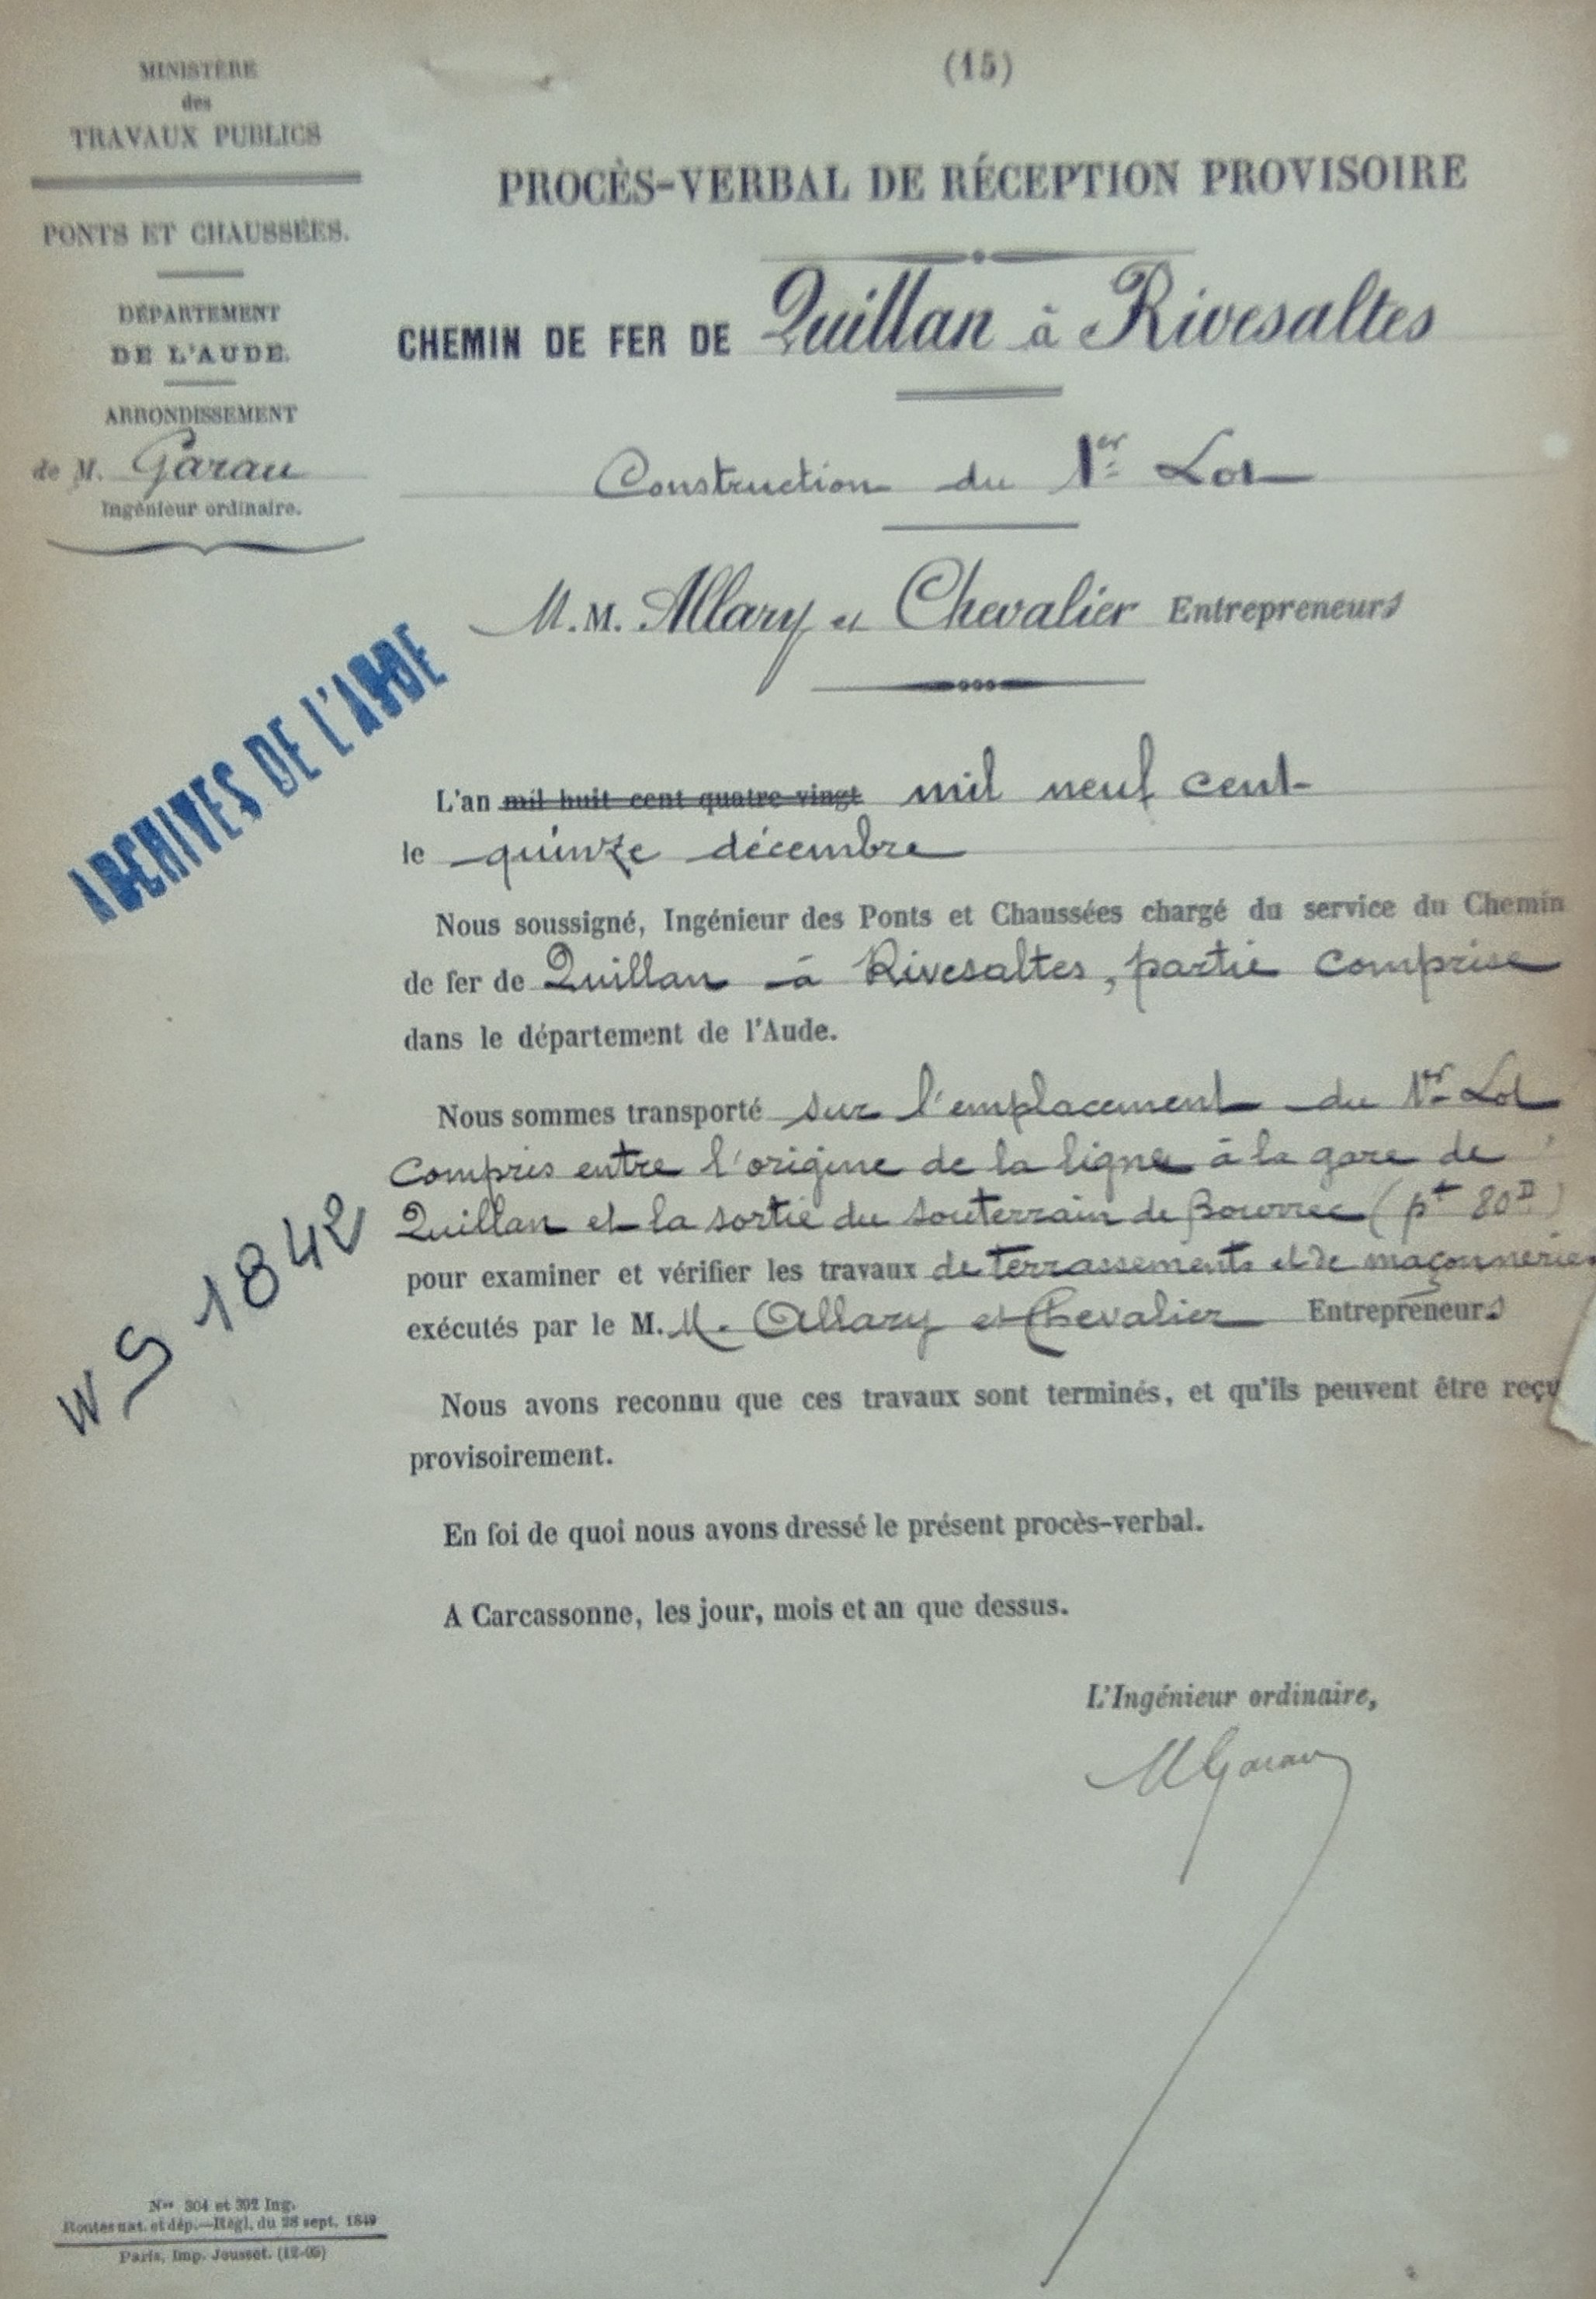 MINISTÈRE
des
TRAVAUX PUBLICS
PONTS ET CHAUSSÉES.
DÉPARTEMENT
DE L'AUDE.
ARRONDISSEMENT
de M. Garau
Ingénieur ordinaire.
(15)
PROCÈS-VERBAL DE RÉCEPTION PROVISOIRE
CHEMIN DE FER DE Quillan à Rivesaltes
Construction du 1er Lot
M.M. Allary et Chevalier Entrepreneurs
ARCHIVES DE L'AUDE
L'an mil huit cent quatre-vingt mil neuf cent
le quinze décembre
Nous soussigné, Ingénieur des Ponts et Chaussées chargé du service du Chemin
de fer de Quillan à Rivesaltes, partie comprise
dans le département de l'Aude.
Nous sommes transporté sur l'emplacement du 1er Lot
compris entre l'origine de la ligne à la gare de
Quillan et la sortie du souterrain de Bourrec (pt 80D)
pour examiner et vérifier les travaux de terrassements et de maçonneries
exécutés par le M. M. Allary et Chevalier Entrepreneurs
WS 1842
Nous avons reconnu que ces travaux sont terminés, et qu'ils peuvent être reçu
provisoirement.
En foi de quoi nous avons dressé le présent procès-verbal.
A Carcassonne, les jour, mois et an que dessus.
L'Ingénieur ordinaire,
MGarau
Nos 304 et 302 Ing.
Routes nat. et dép.—Règl. du 28 sept. 1849
Paris, Imp. Jousset. (12-05)